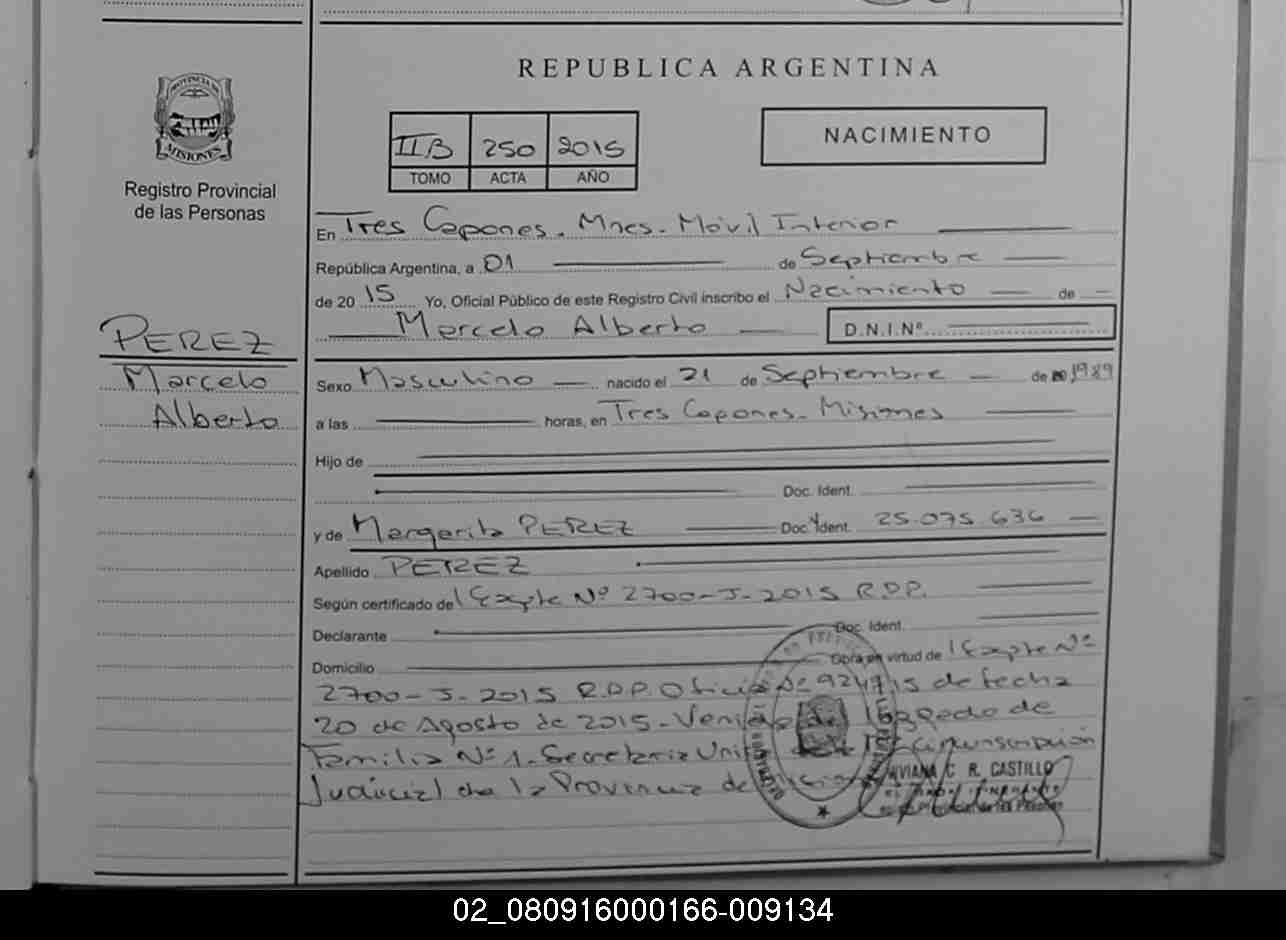 REPUBLICA ARGENTINA
PROVINCIA DE
MISIONES
Registro Provincial
de las Personas
IIB 250 2015
TOMO ACTA AÑO
NACIMIENTO
En Tres Capones. Mnes. Móvil Interior
República Argentina, a 01 de Septiembre
de 20 15 Yo, Oficial Público de este Registro Civil inscribo el Nacimiento de
Marcelo Alberto D.N.I.Nº
PEREZ
Marcelo
Alberto
Sexo Masculino nacido el 21 de Septiembre de 1989
a las horas, en Tres Capones. Misiones
Hijo de
Doc. Ident.
y de Margarita PEREZ Doc. Ident. 25.075.636
Apellido PEREZ
Según certificado de Expte Nº 2700-J-2015 R.D.P.
Declarante Doc. Ident.
Domicilio Obra en virtud de Expte Nº
2700-J-2015 R.D.P. Oficio Nº de fecha
20 de Agosto de 2015 - del Juzgado de
Familia Nº 1. Secretaria Circunscripción
Judicial de la Provincia de
VIVIANA C R. CASTILLO
02_080916000166-009134